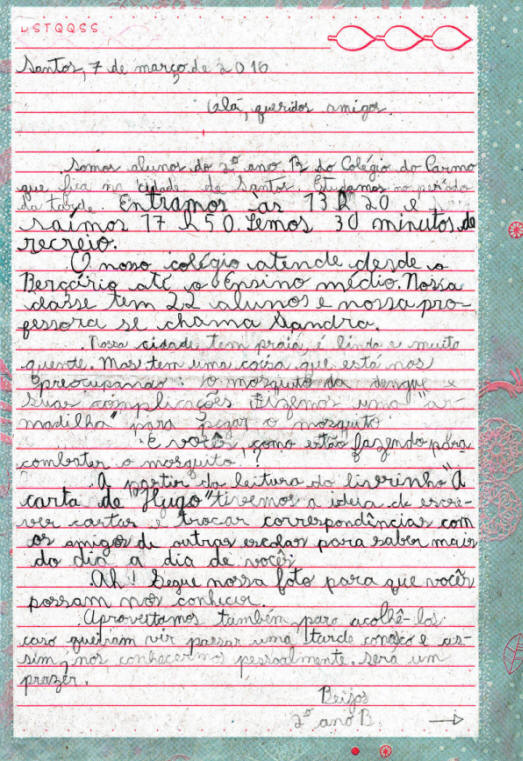 DSTQQSS
Santos, 7 de março de 2016
Olá, queridos amigos.
Somos alunos do 2º ano B do Colégio do Carmo
que fica na cidade de Santos. Estudamos no período
da tarde. Entramos às 13 h 20 e
saímos 17 h 50. Temos 30 minutos de
recreio.
O nosso colégio atende desde o
Berçário até o Ensino médio. Nossa
classe tem 22 alunos e nossa pro-
fessora se chama Sandra.
Nossa cidade tem praia, é linda e muito
quente. Mas tem uma coisa que está nos
preocupando: o mosquito da dengue e
suas complicações Fizemos uma "ar-
madilha" para pegar o mosquito.
E vocês, como estão fazendo para
combater o mosquito?
A partir da leitura do livrinho "A
carta de Hugo" tivemos a ideia de escre-
ver cartas e trocar correspondências com
os amigos de outras escolas para saber mais
do dia a dia de vocês
Ah! Segue nossa foto para que vocês
possam nos conhecer.
Aproveitamos também para acolhê-los
caso queiram vir passar uma tarde conosco e as-
sim nos conhecermos pessoalmente, será um
prazer.
Beijos
2º ano B